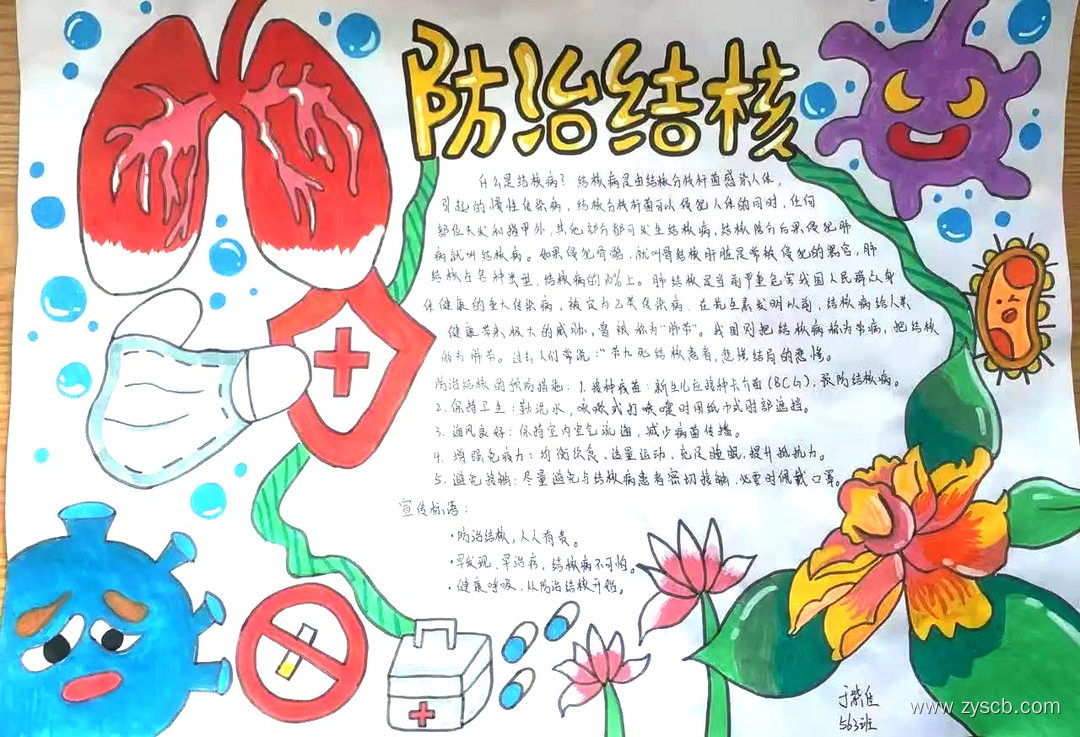 防治结核
什么是结核病？结核病是由结核分枝杆菌感染人体，
引起的慢性传染病，结核分枝杆菌可以侵犯人体的同时，任何
部位头发和指甲外，其他部分都可发生结核病，结核 如果侵犯肺
病就叫结核病。如果侵犯骨骼，就叫骨结核 肺脏是常被侵犯的器官，肺
结核占各种类型，结核病的 %上。肺结核是当前严重危害我国人民群众身
体健康的重大传染病，被定为乙类传染病。在抗生素发明以前，结核病给人类
健康带来极大的威胁，曾被称为"肺节"。我国则把结核病称为 病，把结核
称为肺节。过去人们常说："十 九死 结核患者，悲惨结局的悲惨。
防治结核的预防措施：1. 接种疫苗：新生儿应接种卡介苗（BCG），预防结核病。
2. 保持卫生：勤洗水，咳嗽式打喷嚏时用纸巾式肘部遮挡。
3. 通风良好：保持室内空气流通，减少病菌传播。
4. 增强免疫力：均衡饮食、适量运动、充足睡眠，提升抵抗力。
5. 避免接触：尽量避免与结核病患者密切接触，必要时佩戴口罩。
宣传标语：
·防治结核，人人有责。
·早发现、早治疗，结核病不可怕。
·健康呼吸，从防治结核开始。
于紫佳
563班
www.zyscb.com